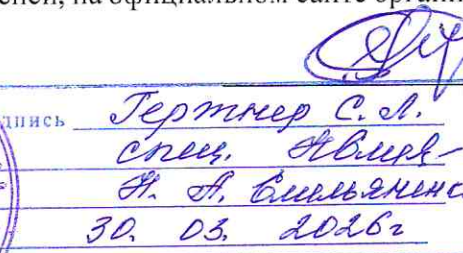 пеней, на официальном сайте органи
дпись Гертнер С. Л.
спец.
Н. А. Емельяненко
30. 03. 2026г